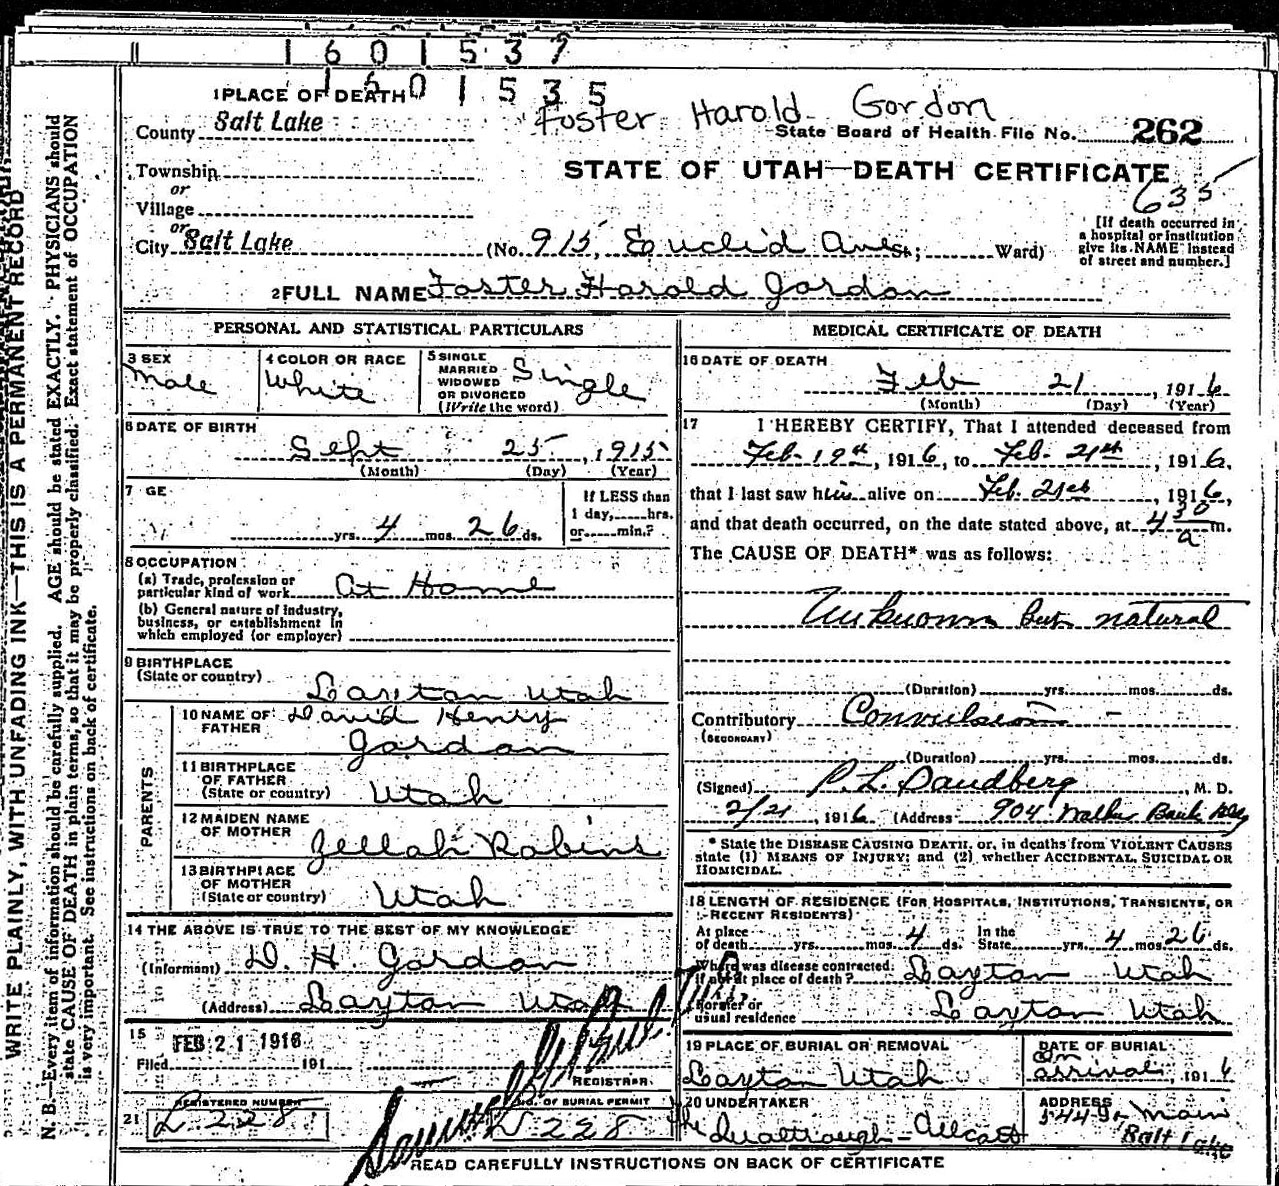 1 6 0 1 5 3 7
1 6 0 1 5 3 5
1 PLACE OF DEATH
Foster Harold Gordon
County Salt Lake
State Board of Health File No. 262
Township
or
Village
STATE OF UTAH—DEATH CERTIFICATE
635
or
City Salt Lake (No. 915, Euclid Ave St.; Ward)
[If death occurred in
a hospital or institution
give its NAME instead
of street and number.]
2 FULL NAME Foster Harold Gordon
PERSONAL AND STATISTICAL PARTICULARS
3 SEX
Male
4 COLOR OR RACE
White
5 SINGLE
MARRIED
WIDOWED
OR DIVORCED
(Write the word)
Single
6 DATE OF BIRTH
Sept 25, 1915
(Month) (Day) (Year)
7 GE
yrs. 4 mos. 26 ds.
If LESS than
1 day, hrs.
or min.?
8 OCCUPATION
(a) Trade, profession or
particular kind of work At Home
(b) General nature of industry,
business, or establishment in
which employed (or employer)
9 BIRTHPLACE
(State or country)
Layton Utah
PARENTS
10 NAME OF
FATHER
David Henry
Gordon
11 BIRTHPLACE
OF FATHER
(State or country) Utah
12 MAIDEN NAME
OF MOTHER
Zellah Robins
13 BIRTHPLACE
OF MOTHER
(State or country) Utah
14 THE ABOVE IS TRUE TO THE BEST OF MY KNOWLEDGE
(Informant) D. H. Gordon
(Address) Layton Utah
15
FEB 21 1916
Filed 191
REGISTRAR
21
REGISTERED NUMBER
L 228
NO. OF BURIAL PERMIT
L 228
MEDICAL CERTIFICATE OF DEATH
16 DATE OF DEATH
Feb 21, 1916
(Month) (Day) (Year)
17 I HEREBY CERTIFY, That I attended deceased from
Feb. 19th, 1916, to Feb. 21st, 1916,
that I last saw him alive on Feb. 21st, 1916,
and that death occurred, on the date stated above, at 4 30 a m.
The CAUSE OF DEATH* was as follows:
Unknown but natural
(Duration) yrs. mos. ds.
Contributory Convulsion
(SECONDARY)
(Duration) yrs. mos. ds.
(Signed) P. L. Sandberg, M. D.
2/21, 1916 (Address 904 Walker Bank Bldg
* State the DISEASE CAUSING DEATH, or, in deaths from VIOLENT CAUSES
state (1) MEANS OF INJURY; and (2) whether ACCIDENTAL, SUICIDAL OR
HOMICIDAL.
18 LENGTH OF RESIDENCE (FOR HOSPITALS, INSTITUTIONS, TRANSIENTS, OR
RECENT RESIDENTS)
At place
of death yrs. mos. 4 ds. In the
State yrs. 4 mos. 26 ds.
Where was disease contracted,
if not at place of death? Layton Utah
Former or
usual residence Layton Utah
19 PLACE OF BURIAL OR REMOVAL
Layton Utah
DATE OF BURIAL
On
arrival, 1916
20 UNDERTAKER
ADDRESS
Main
Salt Lake
READ CAREFULLY INSTRUCTIONS ON BACK OF CERTIFICATE
WRITE PLAINLY, WITH UNFADING INK—THIS IS A PERMANENT RECORD
N. B.—Every item of information should be carefully supplied. AGE should be stated EXACTLY. PHYSICIANS should
state CAUSE OF DEATH in plain terms, so that it may be properly classified. Exact statement of OCCUPATION
is very important. See instructions on back of certificate.